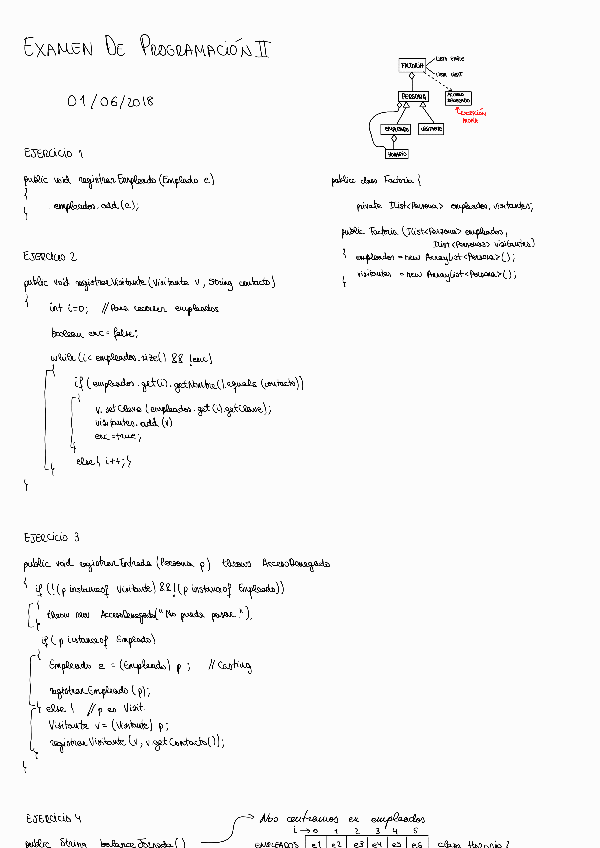 EXAMEN DE PROGRAMACIÓN II
01/06/2018
FACTORIA
LISTA EMPLE
LISTA VISIT
PERSONA
ACCESO
DENEGADO
EXCEPCIÓN
EMPLEADO
VISITANTE
HORARIO
EJERCICIO 1
public void registrarEmpleado (Empleado e)
{
empleados.add(e);
}
public class Factoria {
private IList<Persona> empleados, visitantes;
public Factoria (IList<Persona> empleados,
IList<Persona> visitantes)
{ empleados = new ArrayList<Persona>();
visitantes = new ArrayList<Persona>();
}
EJERCICIO 2
public void registrarVisitante (Visitante v, String contacto)
{ int i=0; //Para recorrer empleados
boolean enc = false;
while (i < empleados.size() && !enc)
{
if (empleados.get(i).getNombre().equals(contacto))
{
v.setClave (empleados.get(i).getClave);
visitantes.add(v)
enc = true;
}
else { i++; }
}
}
EJERCICIO 3
public void registrarEntrada (Persona p) throws AccesoDenegado
{ if (!(p instanceof Visitante) && !(p instanceof Empleado))
{ throw new AccesoDenegado("No puede pasar.");
}
if (p instanceof Empleado)
{
Empleado e = (Empleado) p; //Casting
registrarEmpleado (p);
} else { //p es Visit.
Visitante v = (Visitante) p;
registrarVisitante (v, v.getContacto());
}
}
EJERCICIO 4
Nos centramos en empleados
i → 0 1 2 3 4 5
public String balanceJornada()
EMPLEADOS e1 e2 e3 e4 e5 e6
class Horario {